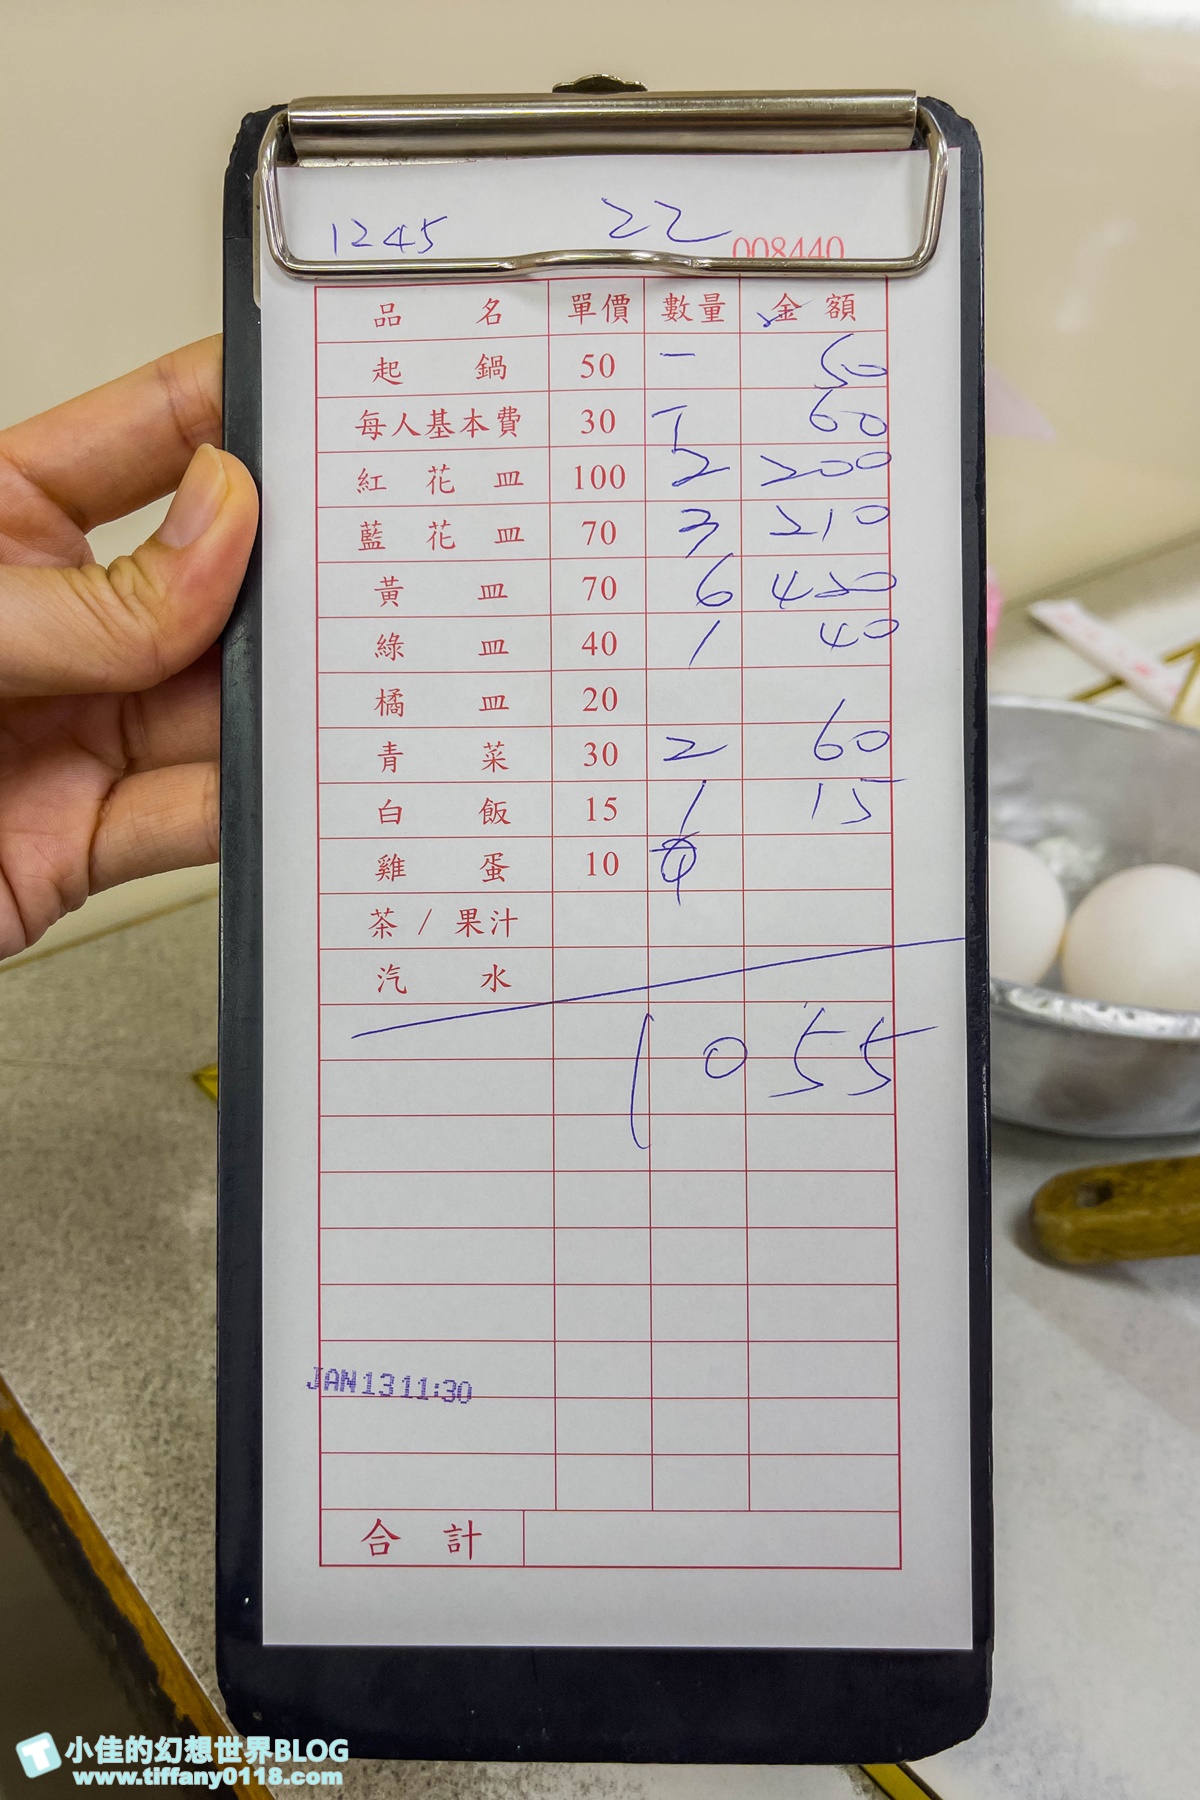 1245 22 008440
品 名 單價 數量 金 額
起 鍋 50 一 50
每人基本費 30 丅 60
紅 花 皿 100 2 200
藍 花 皿 70 3 210
黃 皿 70 6 420
綠 皿 40 1 40
橘 皿 20
青 菜 30 2 60
白 飯 15 1 15
雞 蛋 10
茶 / 果汁
汽 水
1055
JAN 13 11:30
合 計
小佳的幻想世界BLOG
www.tiffany0118.com